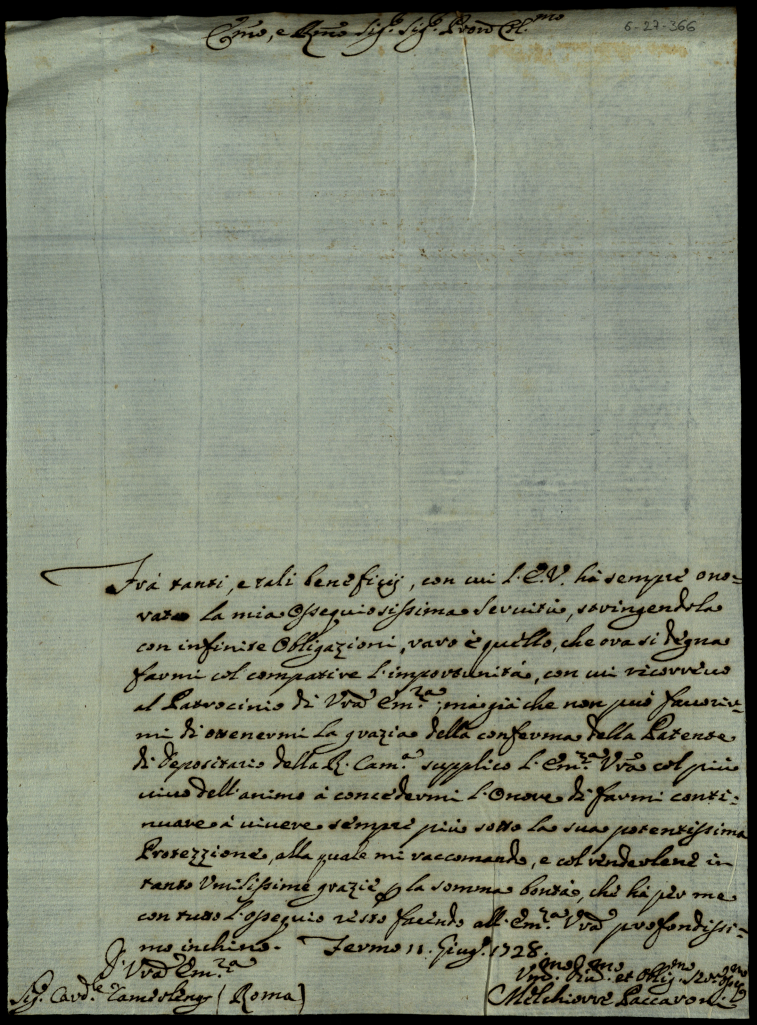 Emo, e Rmo Sig.r Sig.r Pron Col.mo
6-27-366
Frà tanti, e tali beneficij, con cui l'E.V. hà sempre ono=
rato la mia Ossequiosissima Servitù, stringendola
con infinite Obligazioni, raro è quello, che ora si degna
farmi col compatire l'importunità, con cui ricorrevo
al Patrocinio di Vra Em.za; mà già che non può favorir=
mi di ottenermi la grazia della conferma della Patente
di Depositario della R. Cam.a supplico l'Em.za Vra col più
vivo dell'animo à concedermi l'Onore di farmi conti=
nuare à vivere sempre più sotto la sua potentissima
Protezzione, alla quale mi raccomando, e col renderlene in
tanto Umilissime grazie p la somma bontà, che hà per me
con tutto l'ossequio resto facendo all'Em.za Vra profondissi=
mo inchino. Fermo 11. Giug.o 1728.
D. Vra Em.za
Um.mo Dev.mo et Obblig.mo Ser.re
Sig.r Card.le Camerlengo (Roma)
Melchiorre Paccaroni